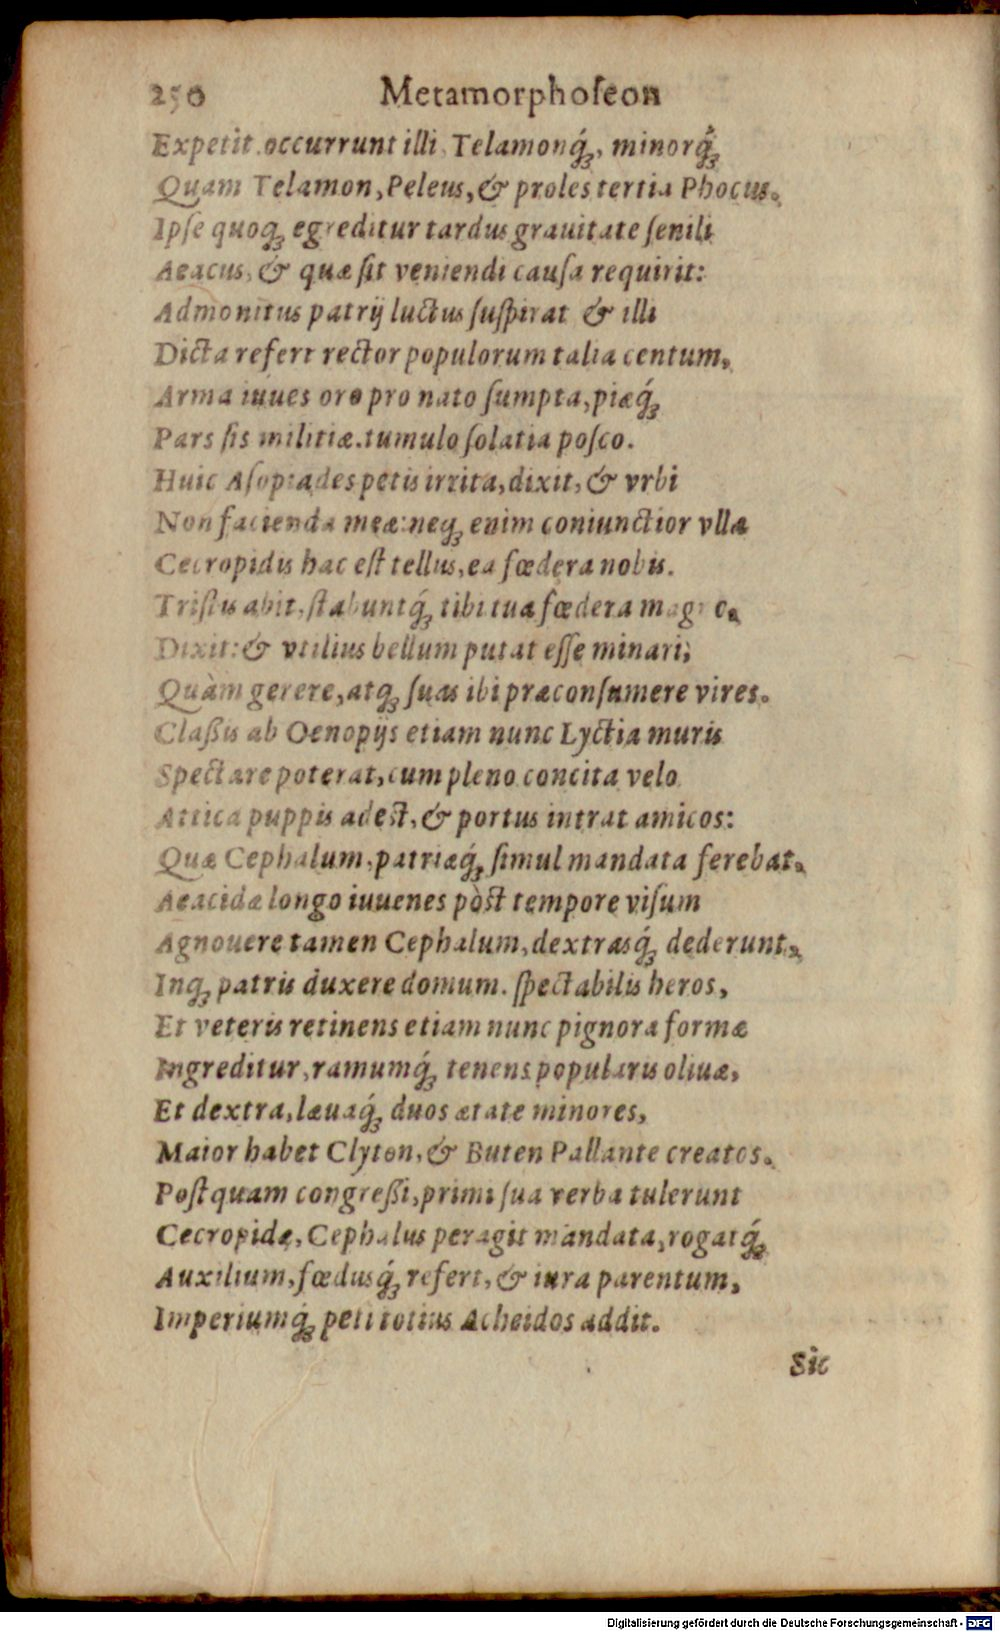 250 Metamorphoſeon
Expetit. occurrunt illi, Telamonq́;, minorq́;
Quam Telamon, Peleus, & proles tertia Phocus.
Ipſe quoq; egreditur tardus grauitate ſenili
Aeacus, & quæ ſit veniendi cauſa requirit:
Admonitus patrij luctus ſuſpirat & illi
Dicta refert rector populorum talia centum.
Arma iuues oro pro nato ſumpta, piæq́;
Pars ſis militiæ. tumulo ſolatia poſco.
Huic Aſopiades petis irrita, dixit, & vrbi
Non facienda meæ: neq; enim coniunctior vlla
Cecropidis hac eſt tellus, ea fœdera nobis.
Triſtis abit, ſtabuntq́; tibi tua fœdera magno,
Dixit: & vtilius bellum putat eſſe minari;
Quàm gerere, atq; ſuas ibi præconſumere vires.
Claßis ab Oenopijs etiam nunc Lyctia muris
Spectare poterat, cum pleno concita velo
Attica puppis adeſt, & portus intrat amicos:
Quæ Cephalum, patriæq́; ſimul mandata ferebat.
Aeacidæ longo iuuenes pòſt tempore viſum
Agnouere tamen Cephalum, dextrasq́; dederunt,
Inq; patris duxere domum. ſpectabilis heros,
Et veteris retinens etiam nunc pignora formæ
Ingreditur, ramumq́; tenens popularis oliuæ,
Et dextra, læuaq́; duos ætate minores,
Maior habet Clyton, & Buten Pallante creatos.
Poſtquam congreßi, primi ſua verba tulerunt
Cecropidæ, Cephalus peragit mandata, rogatq́;
Auxilium, fœdusq́; refert, & iura parentum,
Imperiumq́; peti totius Acheidos addit.
Sic
Digitalisierung gefördert durch die Deutsche Forschungsgemeinschaft - DFG